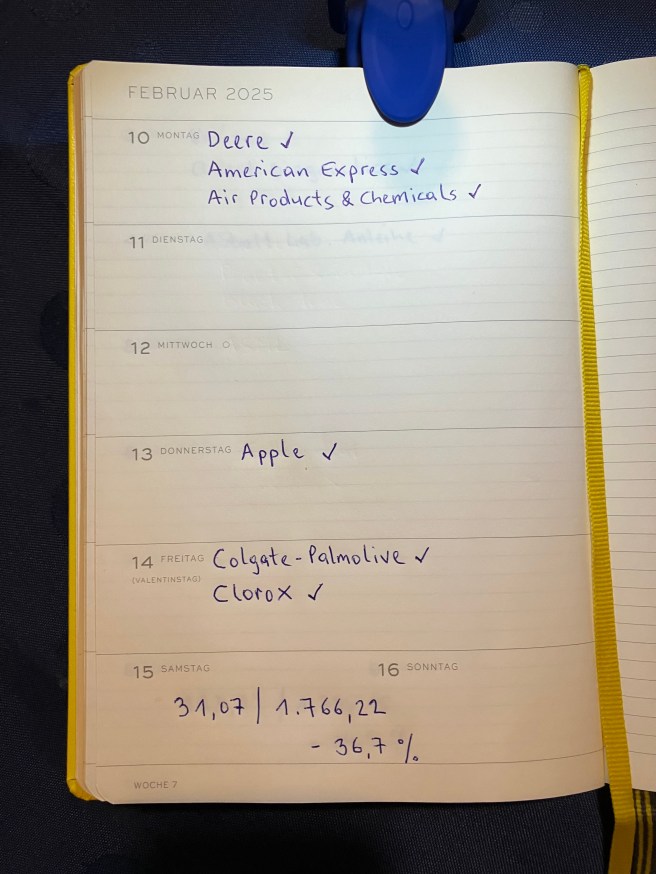 FEBRUAR 2025
10 MONTAG Deere ✓
American Express ✓
Air Products & Chemicals ✓
11 DIENSTAG
12 MITTWOCH
13 DONNERSTAG Apple ✓
14 FREITAG Colgate-Palmolive ✓
(VALENTINSTAG)
Clorox ✓
15 SAMSTAG 16 SONNTAG
31,07 | 1.766,22
- 36,7 %
WOCHE 7